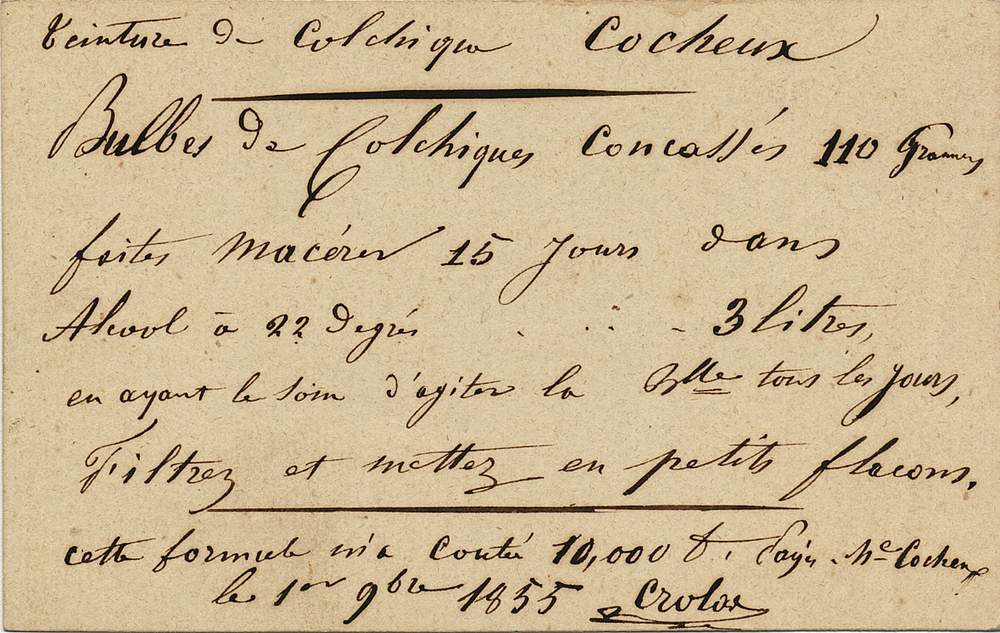 Teinture de Colchique Cocheux
Bulbes de Colchiques Concassés 110 Grammes
faites Macérer 15 Jours dans
Alcool à 22 Degrés . . . . 3 litres,
en ayant le soin d'agiter la Blle tous les Jours,
Filtrez et mettez en petits flacons.
cette formule m'a Coutée 10,000 f. Payé Mr Cocheux
le 1er 9bre 1855 Crolas